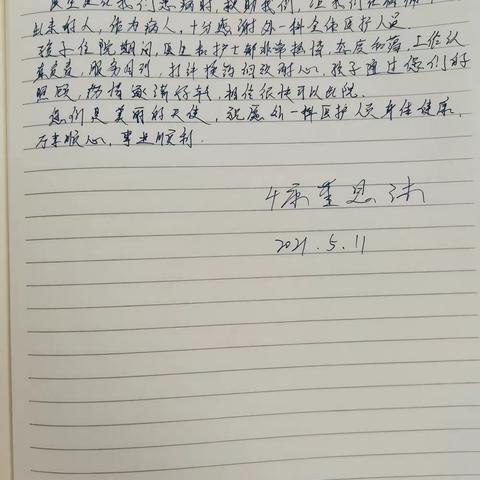 医生是在我们患病时,救助我们,让我们在病痛中
出来的人,作为病人,十分感谢外一科全体医护人员
孩子住院期间,医生和护士都非常热情,态度和蔼,工作认
真负责,服务周到,打针换药细致耐心,孩子通过您们的
照顾,病情逐渐好转,相信很快可以出院.
您们是美丽的天使,祝愿外一科医护人员身体健康,
万事顺心,事业顺利.
4床董
2021.5.11